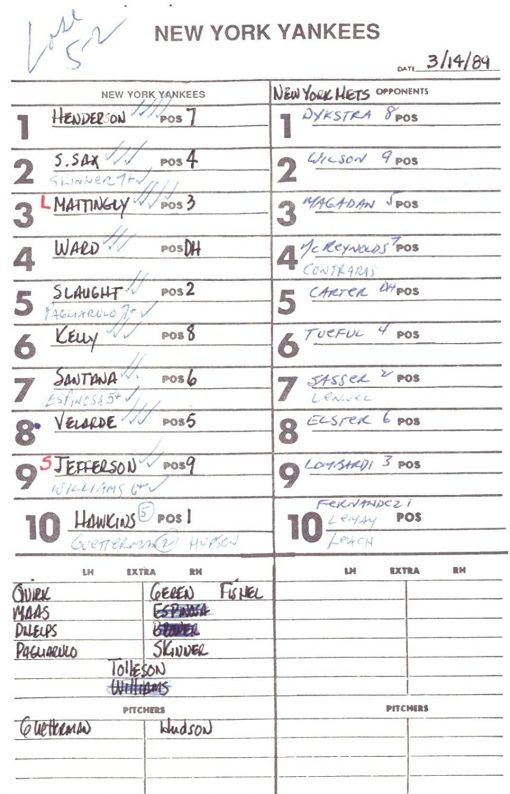 Lose
5-2
NEW YORK YANKEES
DATE 3/14/89
NEW YORK YANKEES
NEW YORK METS OPPONENTS
1 HENDERSON POS 7
1 DYKSTRA 8 POS
2 S. SAX POS 4
SKINNER
2 WILSON 9 POS
3 L MATTINGLY POS 3
3 MAGADAN 5 POS
4 WARD POS DH
4 McREYNOLDS 7 POS
CONTRARAS
5 SLAUGHT POS 2
PAGLIARULO
5 CARTER DH POS
6 KELLY POS 8
6 TUEFUL 4 POS
7 SANTANA POS 6
ESPINOSA 5+
7 SASSER 2 POS
8 VELARDE POS 5
8 ELSTER 6 POS
9 S JEFFERSON POS 9
WILLIAMS 6+
9 LOMBARDI 3 POS
10 HAWKINS 5 POS 1
GUETTERMAN 2 HUDSON
10 FERNANDEZ 1 POS
LEACH
LH EXTRA RH
LH EXTRA RH
QUIRK GEREN FISHEL
MAAS ESPINOSA
PHELPS
PAGLIARULO SKINNER
TOLLESON
WILLIAMS
PITCHERS
PITCHERS
GUETTERMAN HUDSON